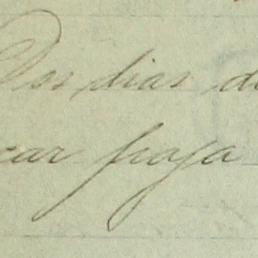 Dos dias d
car praja